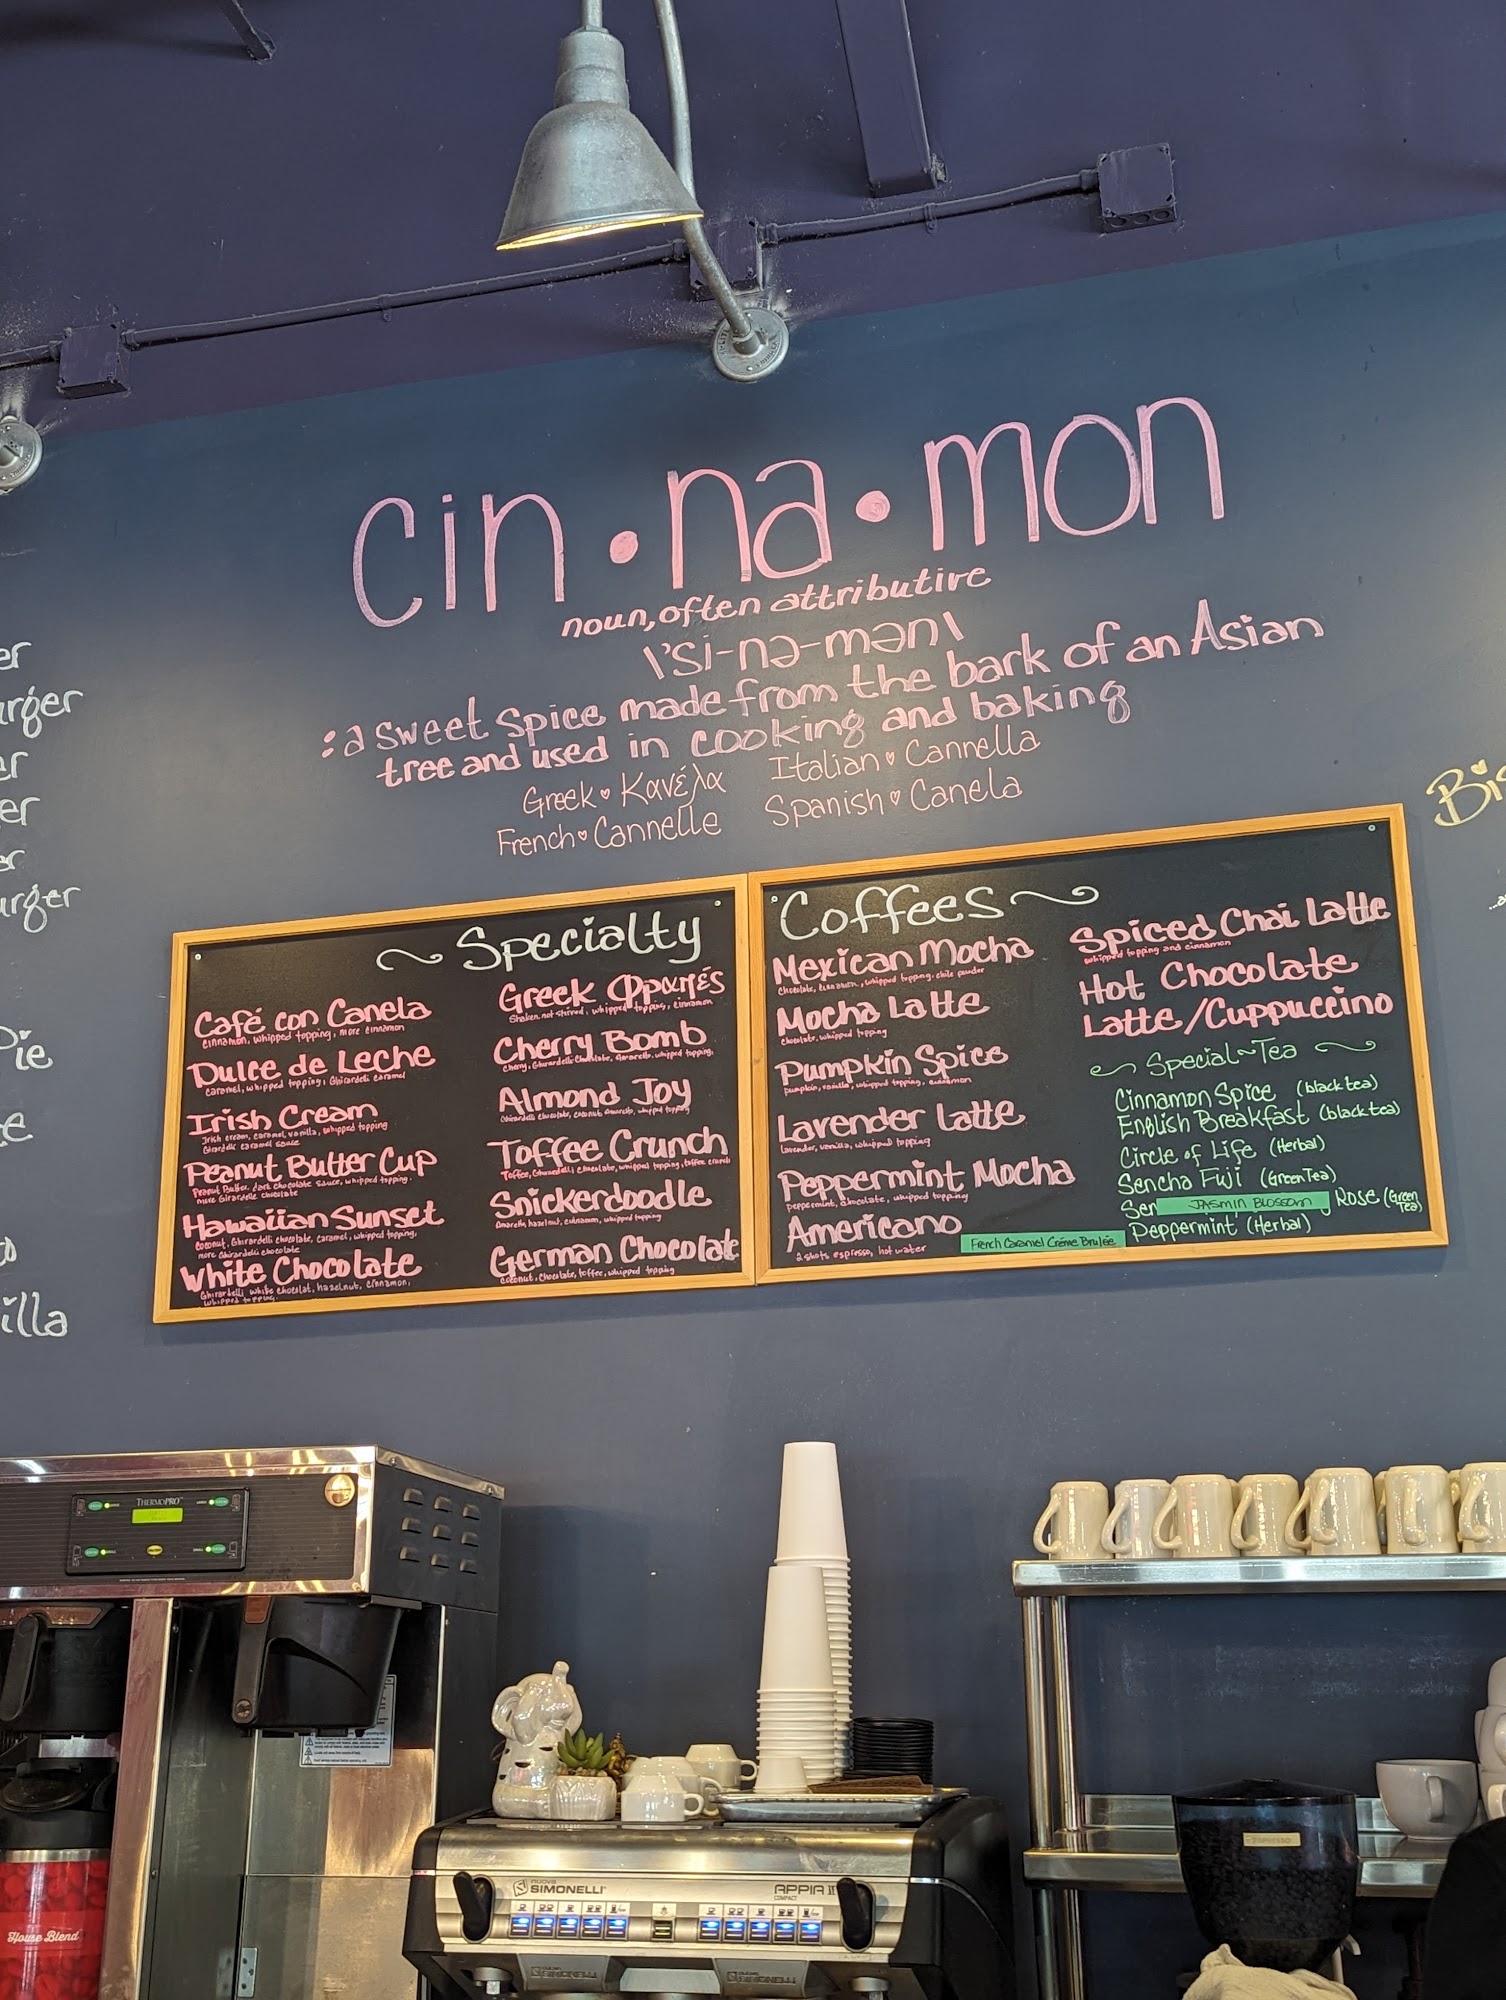 cin·na·mon
noun, often attributive
\'si-nə-mən\
: a sweet spice made from the bark of an Asian
tree and used in cooking and baking
Greek Κανέλα
Italian Cannella
French Cannelle
Spanish Canela
er
urger
er
er
er
urger
Pie
illa
Bis
Specialty
Café con Canela
cinnamon, whipped topping, more cinnamon
Dulce de Leche
caramel, whipped topping, Ghirardeli caramel
Irish Cream
Irish cream, caramel, vanilla, whipped topping
Girardeli caramel sauce
Peanut Butter Cup
Peanut Butter, dark chocolate sauce, whipped topping,
more Girardelle chocolate
Hawaiian Sunset
coconut, Ghirardeli chocolate, caramel, whipped topping,
more Ghirardeli chocolate
White Chocolate
Ghirardelli white chocolat, hazelnut, cinnamon,
whipped topping.
Greek Φραπές
Shaken not stirred, whipped topping, cinnamon
Cherry Bomb
cherry, Ghirardelli Chocolate, Amaretto, whipped topping,
Almond Joy
Ghirardelli chocolate, coconut, Amaretto, whipped topping
Toffee Crunch
Toffee, Ghirardelli chocolate, whipped topping, toffee crunch
Snickerdoodle
Amaretto, hazelnut, cinnamon, whipped topping
German Chocolate
coconut, chocolate, toffee, whipped topping
Coffees
Mexican Mocha
chocolate, cinnamon, whipped topping, chile powder
Mocha Latte
chocolate, whipped topping
Pumpkin Spice
pumpkin, vanilla, whipped topping, cinnamon
Lavender Latte
lavender, vanilla, whipped topping
Peppermint Mocha
peppermint, chocolate, whipped topping
Americano
2 shots espresso, hot water
French Caramel Créme Brulée
Spiced Chai Latte
whipped topping and cinnamon
Hot Chocolate
Latte/Cuppuccino
Special~Tea
Cinnamon Spice (black tea)
English Breakfast (black tea)
Circle of Life (Herbal)
Sencha Fuji (Green Tea)
Sen JASMIN BLOSSOM Rose (Green Tea)
Peppermint (Herbal)
THERMOPRO
House Blend
nuova
SIMONELLI
APPIA II
COMPACT
ESPRESSO